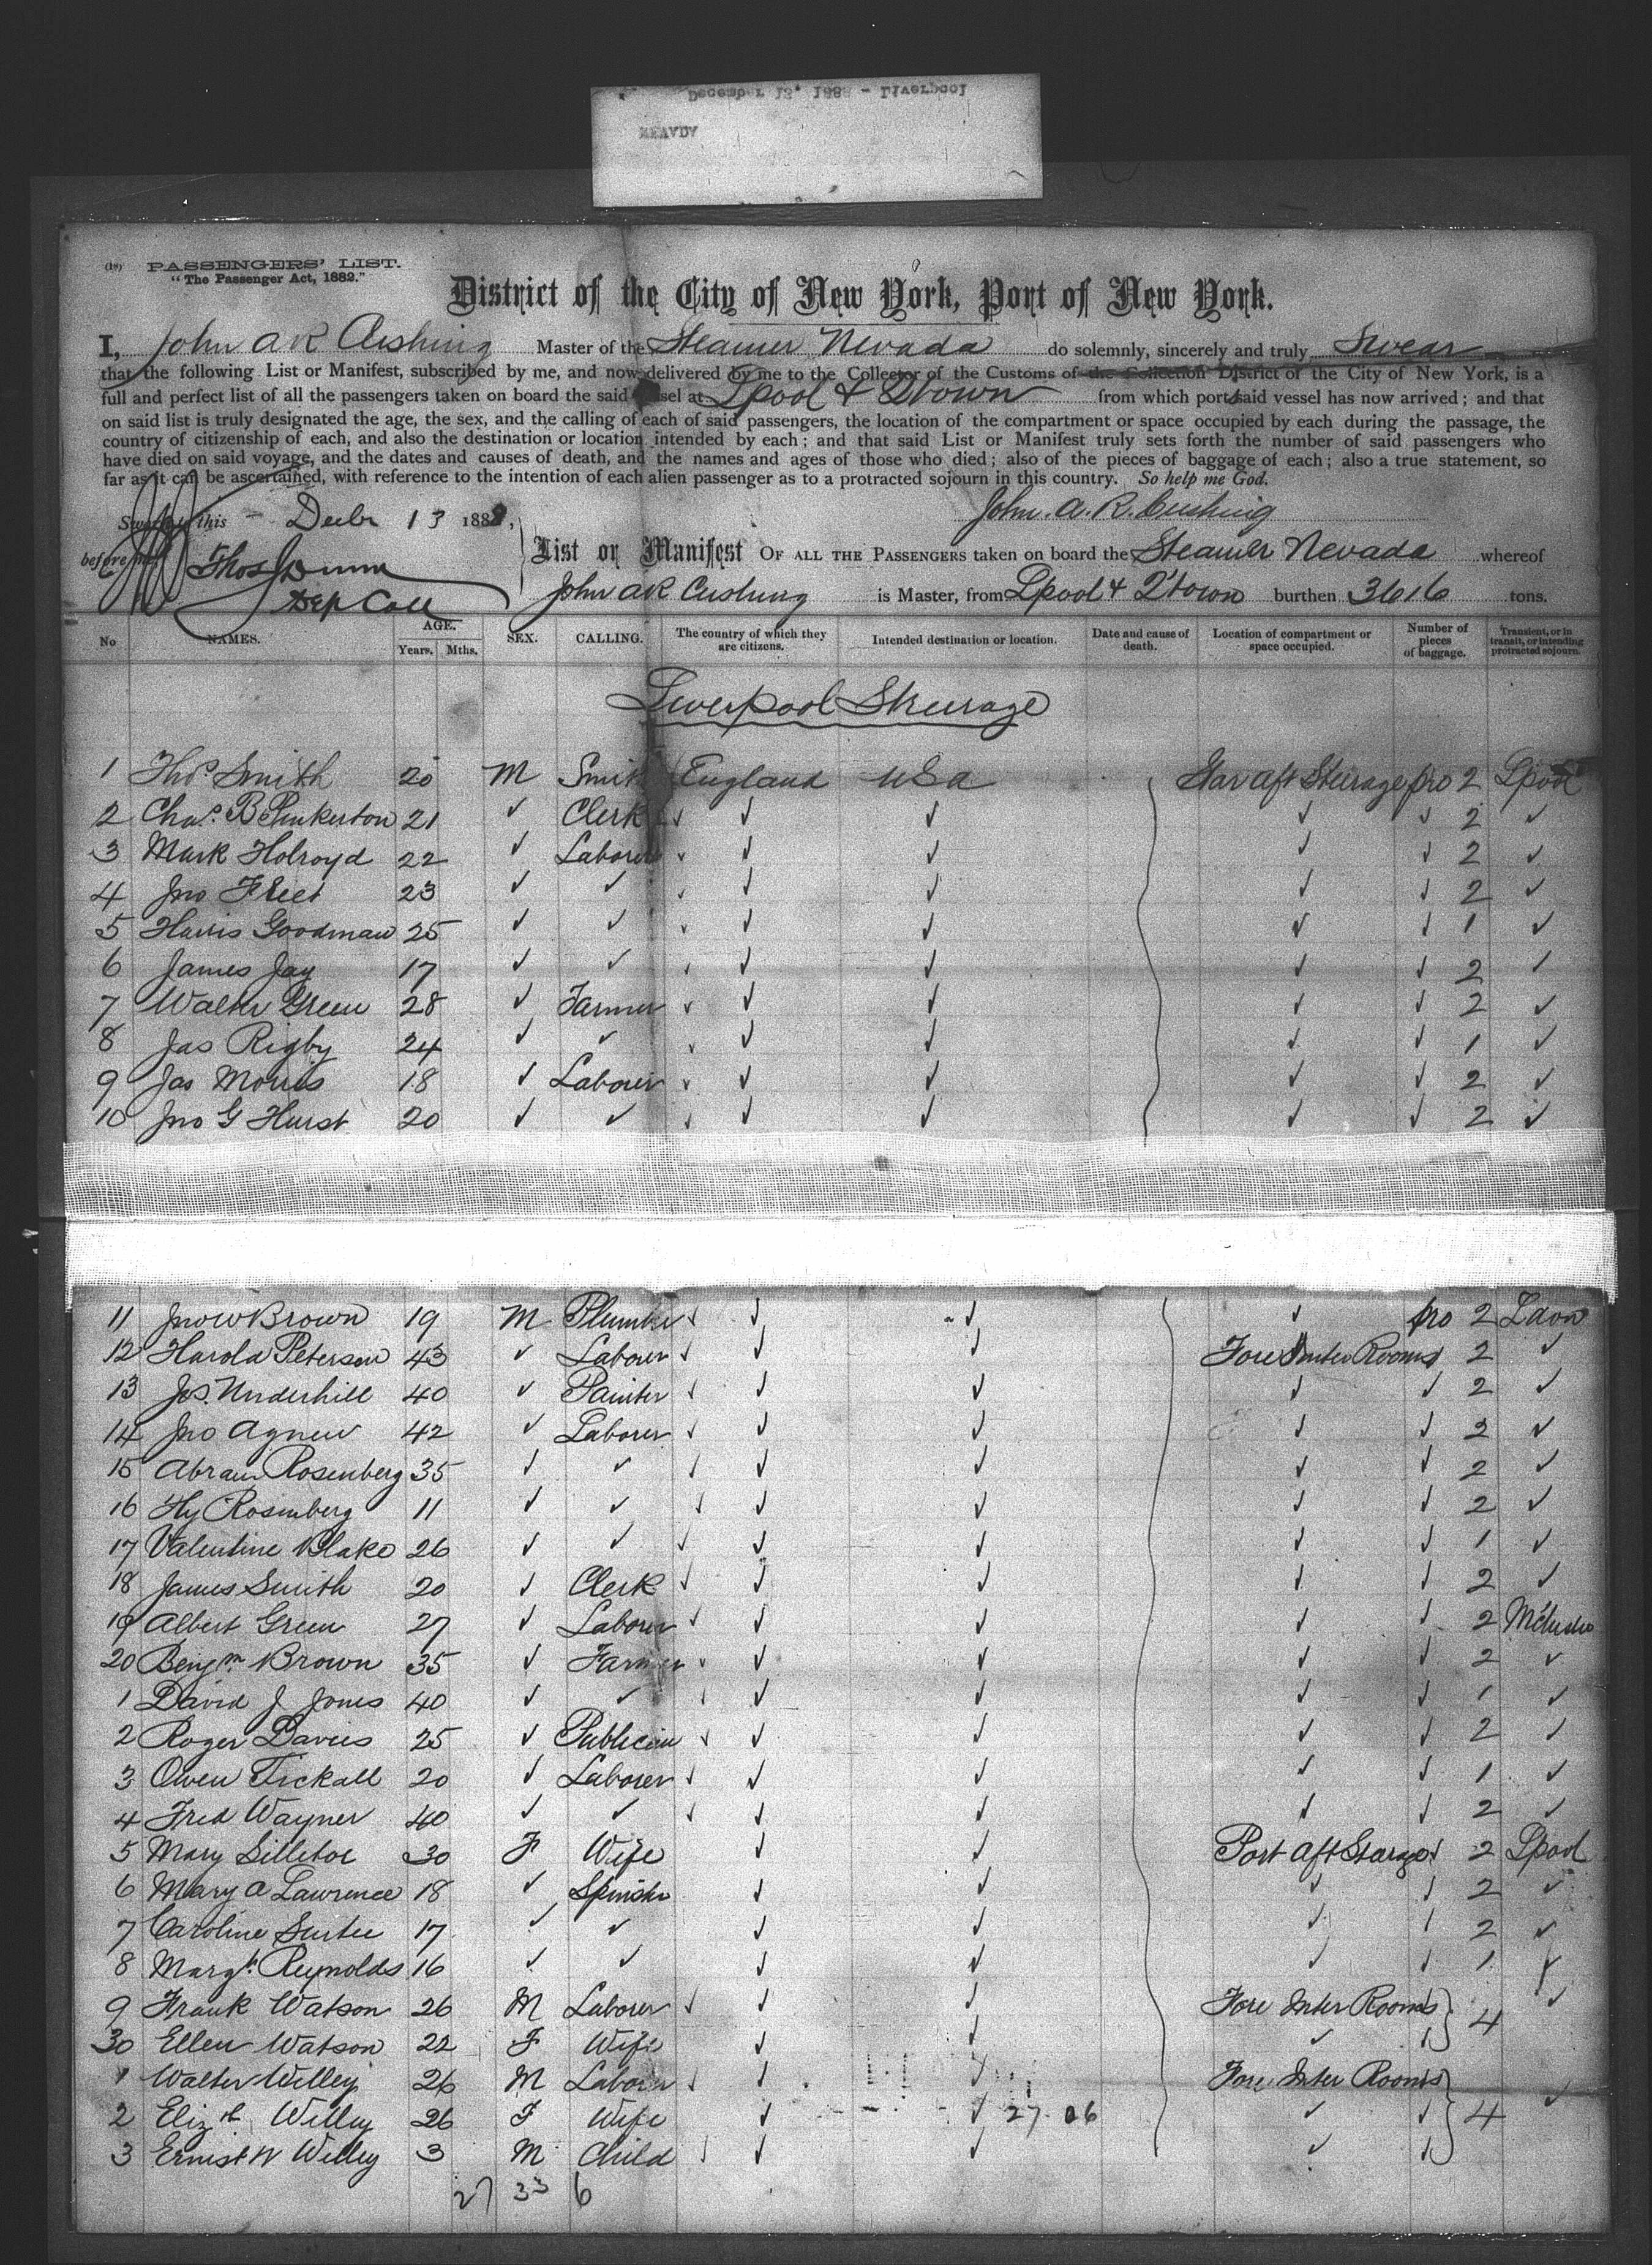 (19) PASSENGERS' LIST.
"The Passenger Act, 1882."
District of the City of New York, Port of New York.
I, John A R Cushing Master of the Steamer Nevada do solemnly, sincerely and truly Swear
that the following List or Manifest, subscribed by me, and now delivered by me to the Collector of the Customs of the Collection District of the City of New York, is a
full and perfect list of all the passengers taken on board the said at Lpool & Qtown from which port said vessel has now arrived; and that
on said list is truly designated the age, the sex, and the calling of each of said passengers, the location of the compartment or space occupied by each during the passage, the
country of citizenship of each, and also the destination or location intended by each; and that said List or Manifest truly sets forth the number of said passengers who
have died on said voyage, and the dates and causes of death, and the names and ages of those who died; also of the pieces of baggage of each; also a true statement, so
far as it can be ascertained, with reference to the intention of each alien passenger as to a protracted sojourn in this country. So help me God.
Sworn this Decbr 13 188 John. A. R. Cushing
before me Thos Dunn List or Manifest OF ALL THE PASSENGERS taken on board the Steamer Nevada whereof
Dep Coll John A R Cushing is Master, from Lpool & Q'town burthen 3616 tons.
No NAMES. AGE. Years. Mths. SEX. CALLING. The country of which they are citizens. Intended destination or location. Date and cause of death. Location of compartment or space occupied. Number of pieces of baggage. Transient, or in transit, or intending protracted sojourn.
Liverpool Steerage
1 Thos Smith 20 M Smith England USA Star aft Steerage pro 2 Lpool
2 Chas. B Pinkerton 21 ✓ Clerk ✓ ✓ ✓ ✓ ✓ 2 ✓
3 Mark Holroyd 22 ✓ Laborer ✓ ✓ ✓ ✓ ✓ 2 ✓
4 Jno 23 ✓ ✓ ✓ ✓ ✓ ✓ ✓ 2 ✓
5 Harris Goodman 25 ✓ ✓ ✓ ✓ ✓ ✓ ✓ 1 ✓
6 James Jay 17 ✓ ✓ ✓ ✓ ✓ ✓ ✓ 2 ✓
7 Walter Green 28 ✓ Farmer ✓ ✓ ✓ ✓ ✓ 2 ✓
8 Jas Rigby 24 ✓ ✓ ✓ ✓ ✓ ✓ ✓ 1 ✓
9 Jas Morris 18 ✓ Laborer ✓ ✓ ✓ ✓ ✓ 2 ✓
10 Jno G Hurst 20 ✓ ✓ ✓ ✓ ✓ ✓ ✓ 2 ✓
11 Jno W Brown 19 M Plumber ✓ ✓ ✓ ✓ pro 2 Ldon
12 Harold Peterson 43 ✓ Laborer ✓ ✓ ✓ Fore Inter Rooms ✓ 2 ✓
13 Jos. Underhill 40 ✓ Painter ✓ ✓ ✓ ✓ ✓ 2 ✓
14 Jno Agnew 42 ✓ Laborer ✓ ✓ ✓ ✓ ✓ 2 ✓
15 Abram Rosenberg 35 ✓ ✓ ✓ ✓ ✓ ✓ ✓ 2 ✓
16 Hy Rosenberg 11 ✓ ✓ ✓ ✓ ✓ ✓ ✓ 2 ✓
17 Valentine Blake 26 ✓ ✓ ✓ ✓ ✓ ✓ ✓ 1 ✓
18 James Smith 20 ✓ Clerk ✓ ✓ ✓ ✓ ✓ 2 ✓
19 Albert Green 27 ✓ Laborer ✓ ✓ ✓ ✓ ✓ 2
20 Benjm. Brown 35 ✓ Farmer ✓ ✓ ✓ ✓ ✓ 2 ✓
1 David J Jones 40 ✓ ✓ ✓ ✓ ✓ ✓ ✓ 1 ✓
2 Roger Davies 25 ✓ Publican ✓ ✓ ✓ ✓ ✓ 2 ✓
3 Owen Tickall 20 ✓ Laborer ✓ ✓ ✓ ✓ ✓ 1 ✓
4 Fred Wayner 40 ✓ ✓ ✓ ✓ ✓ ✓ ✓ 2 ✓
5 Mary Silletoe 30 F Wife ✓ ✓ Port aft Steerage ✓ 2 Lpool
6 Mary A Lawrence 18 ✓ Spinster ✓ ✓ ✓ ✓ 2 ✓
7 Caroline 17 ✓ ✓ ✓ ✓ ✓ ✓ 2 ✓
8 Margt. Reynolds 16 ✓ ✓ ✓ ✓ ✓ ✓ 1 ✓
9 Frank Watson 26 M Laborer ✓ ✓ ✓ Fore Inter Rooms ✓ 4 ✓
30 Ellen Watson 22 F Wife ✓ ✓ ✓ ✓
1 Walter Willey 26 M Laborer ✓ ✓ ✓ Fore Inter Rooms 4 ✓
2 Elizth Willey 26 F Wife ✓ ✓ 27 06 ✓ ✓
3 Ernest W Willey 3 M Child ✓ ✓ ✓ ✓ ✓
27 33 6